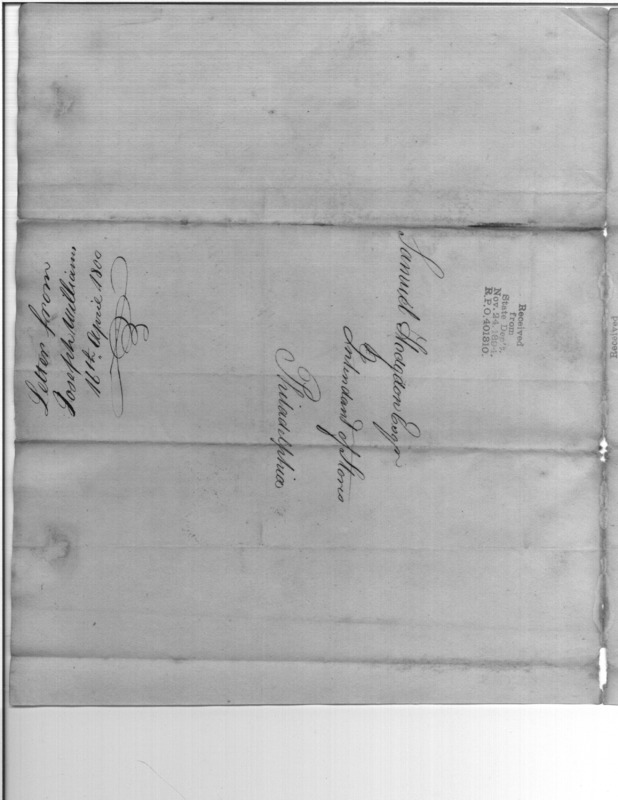 Received
from
State Dep't.
Nov. 24, 1894.
R.P.O. 401810.
Samuel Hodgdon Esqr
Intendant of Stores
Philadelphia
Letter from
Joseph Williams,
18th. April 1800
Received